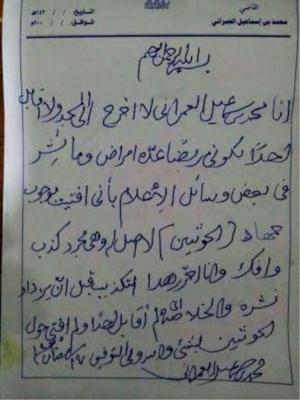 القاضي
محمد بن إسماعيل العمراني
التاريخ: / / ١٤هـ
الموافق: / / ٢٠٠م
بسم الله الرحمن الرحيم
انا محمد بن اسماعيل العمراني لا اخرج الى المسجد ولا اقابل
احدا لكوني مريضا عدة امراض وما نشر
في بعض وسائل الإعلام بأني افتيت بوجوب
جهاد (الحوثيين) لا اصل له وهي مجرد كذب
وافك وانا احرر هذا التكذيب قبل ان يزداد
نشره والخلاصة اني لم أقابل احدا ولم افتي حول
الحوثيين بشيء والله ولي التوفيق
محمد بن اسماعيل العمراني